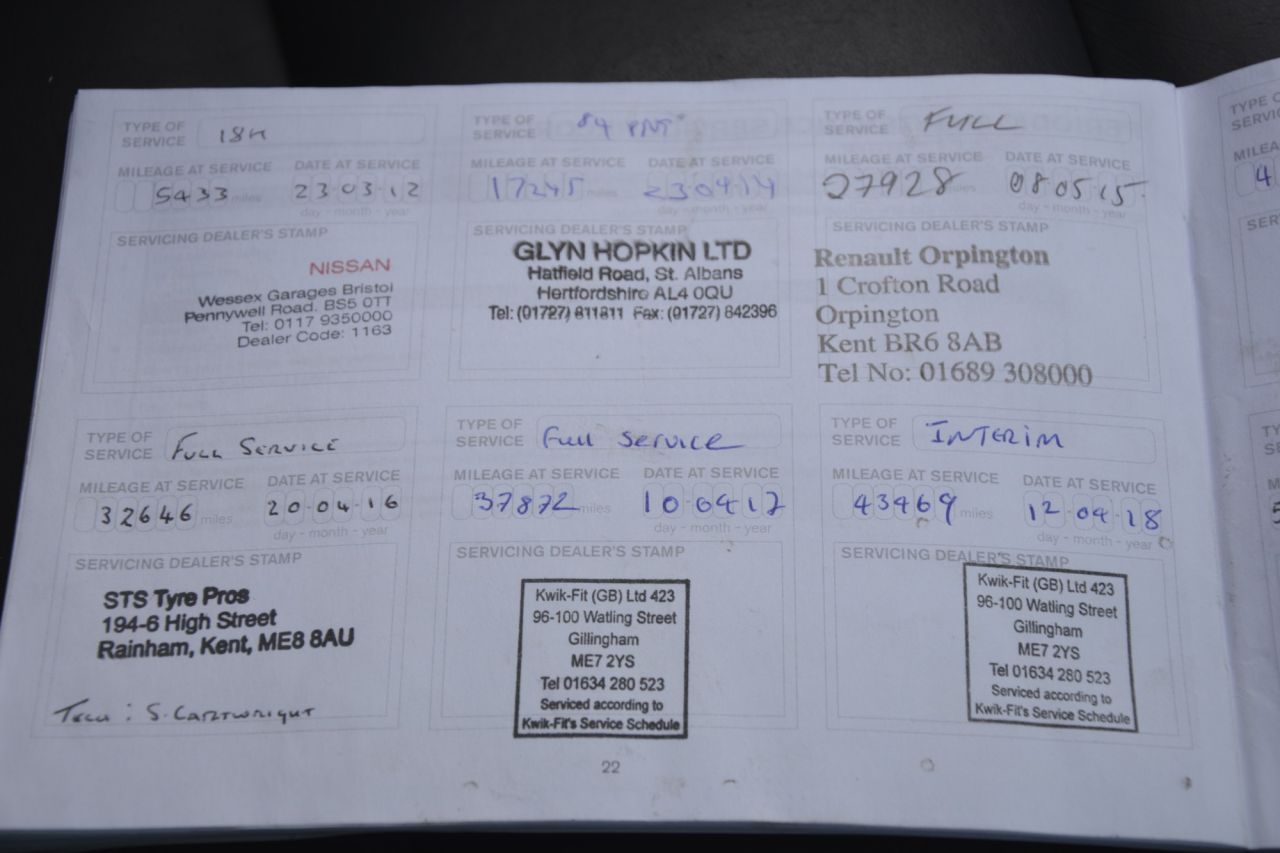 TYPE OF SERVICE 18K
MILEAGE AT SERVICE DATE AT SERVICE
5433 miles 23 03 12
day - month - year
SERVICING DEALER'S STAMP
NISSAN
Wessex Garages Bristol
Pennywell Road. BS5 0TT
Tel: 0117 9350000
Dealer Code: 1163
TYPE OF SERVICE PNT
MILEAGE AT SERVICE DATE AT SERVICE
17245 miles 230414
day - month - year
SERVICING DEALER'S STAMP
GLYN HOPKIN LTD
Hatfield Road, St. Albans
Hertfordshire AL4 0QU
Tel: (01727) 811811 Fax: (01727) 842396
TYPE OF SERVICE FULL
MILEAGE AT SERVICE DATE AT SERVICE
27928 miles 08.05.15
day - month - year
SERVICING DEALER'S STAMP
Renault Orpington
1 Crofton Road
Orpington
Kent BR6 8AB
Tel No: 01689 308000
TYPE OF SERVICE FULL SERVICE
MILEAGE AT SERVICE DATE AT SERVICE
32646 miles 20-04-16
day - month - year
SERVICING DEALER'S STAMP
STS Tyre Pros
194-6 High Street
Rainham, Kent, ME8 8AU
Tech : S. CARTWRIGHT
TYPE OF SERVICE Full Service
MILEAGE AT SERVICE DATE AT SERVICE
37872 miles 10-04 17
day - month - year
SERVICING DEALER'S STAMP
Kwik-Fit (GB) Ltd 423
96-100 Watling Street
Gillingham
ME7 2YS
Tel 01634 280 523
Serviced according to
Kwik-Fit's Service Schedule
TYPE OF SERVICE INTERIM
MILEAGE AT SERVICE DATE AT SERVICE
43469 miles 12-04-18
day - month - year
SERVICING DEALER'S STAMP
Kwik-Fit (GB) Ltd 423
96-100 Watling Street
Gillingham
ME7 2YS
Tel 01634 280 523
Serviced according to
Kwik-Fit's Service Schedule
22